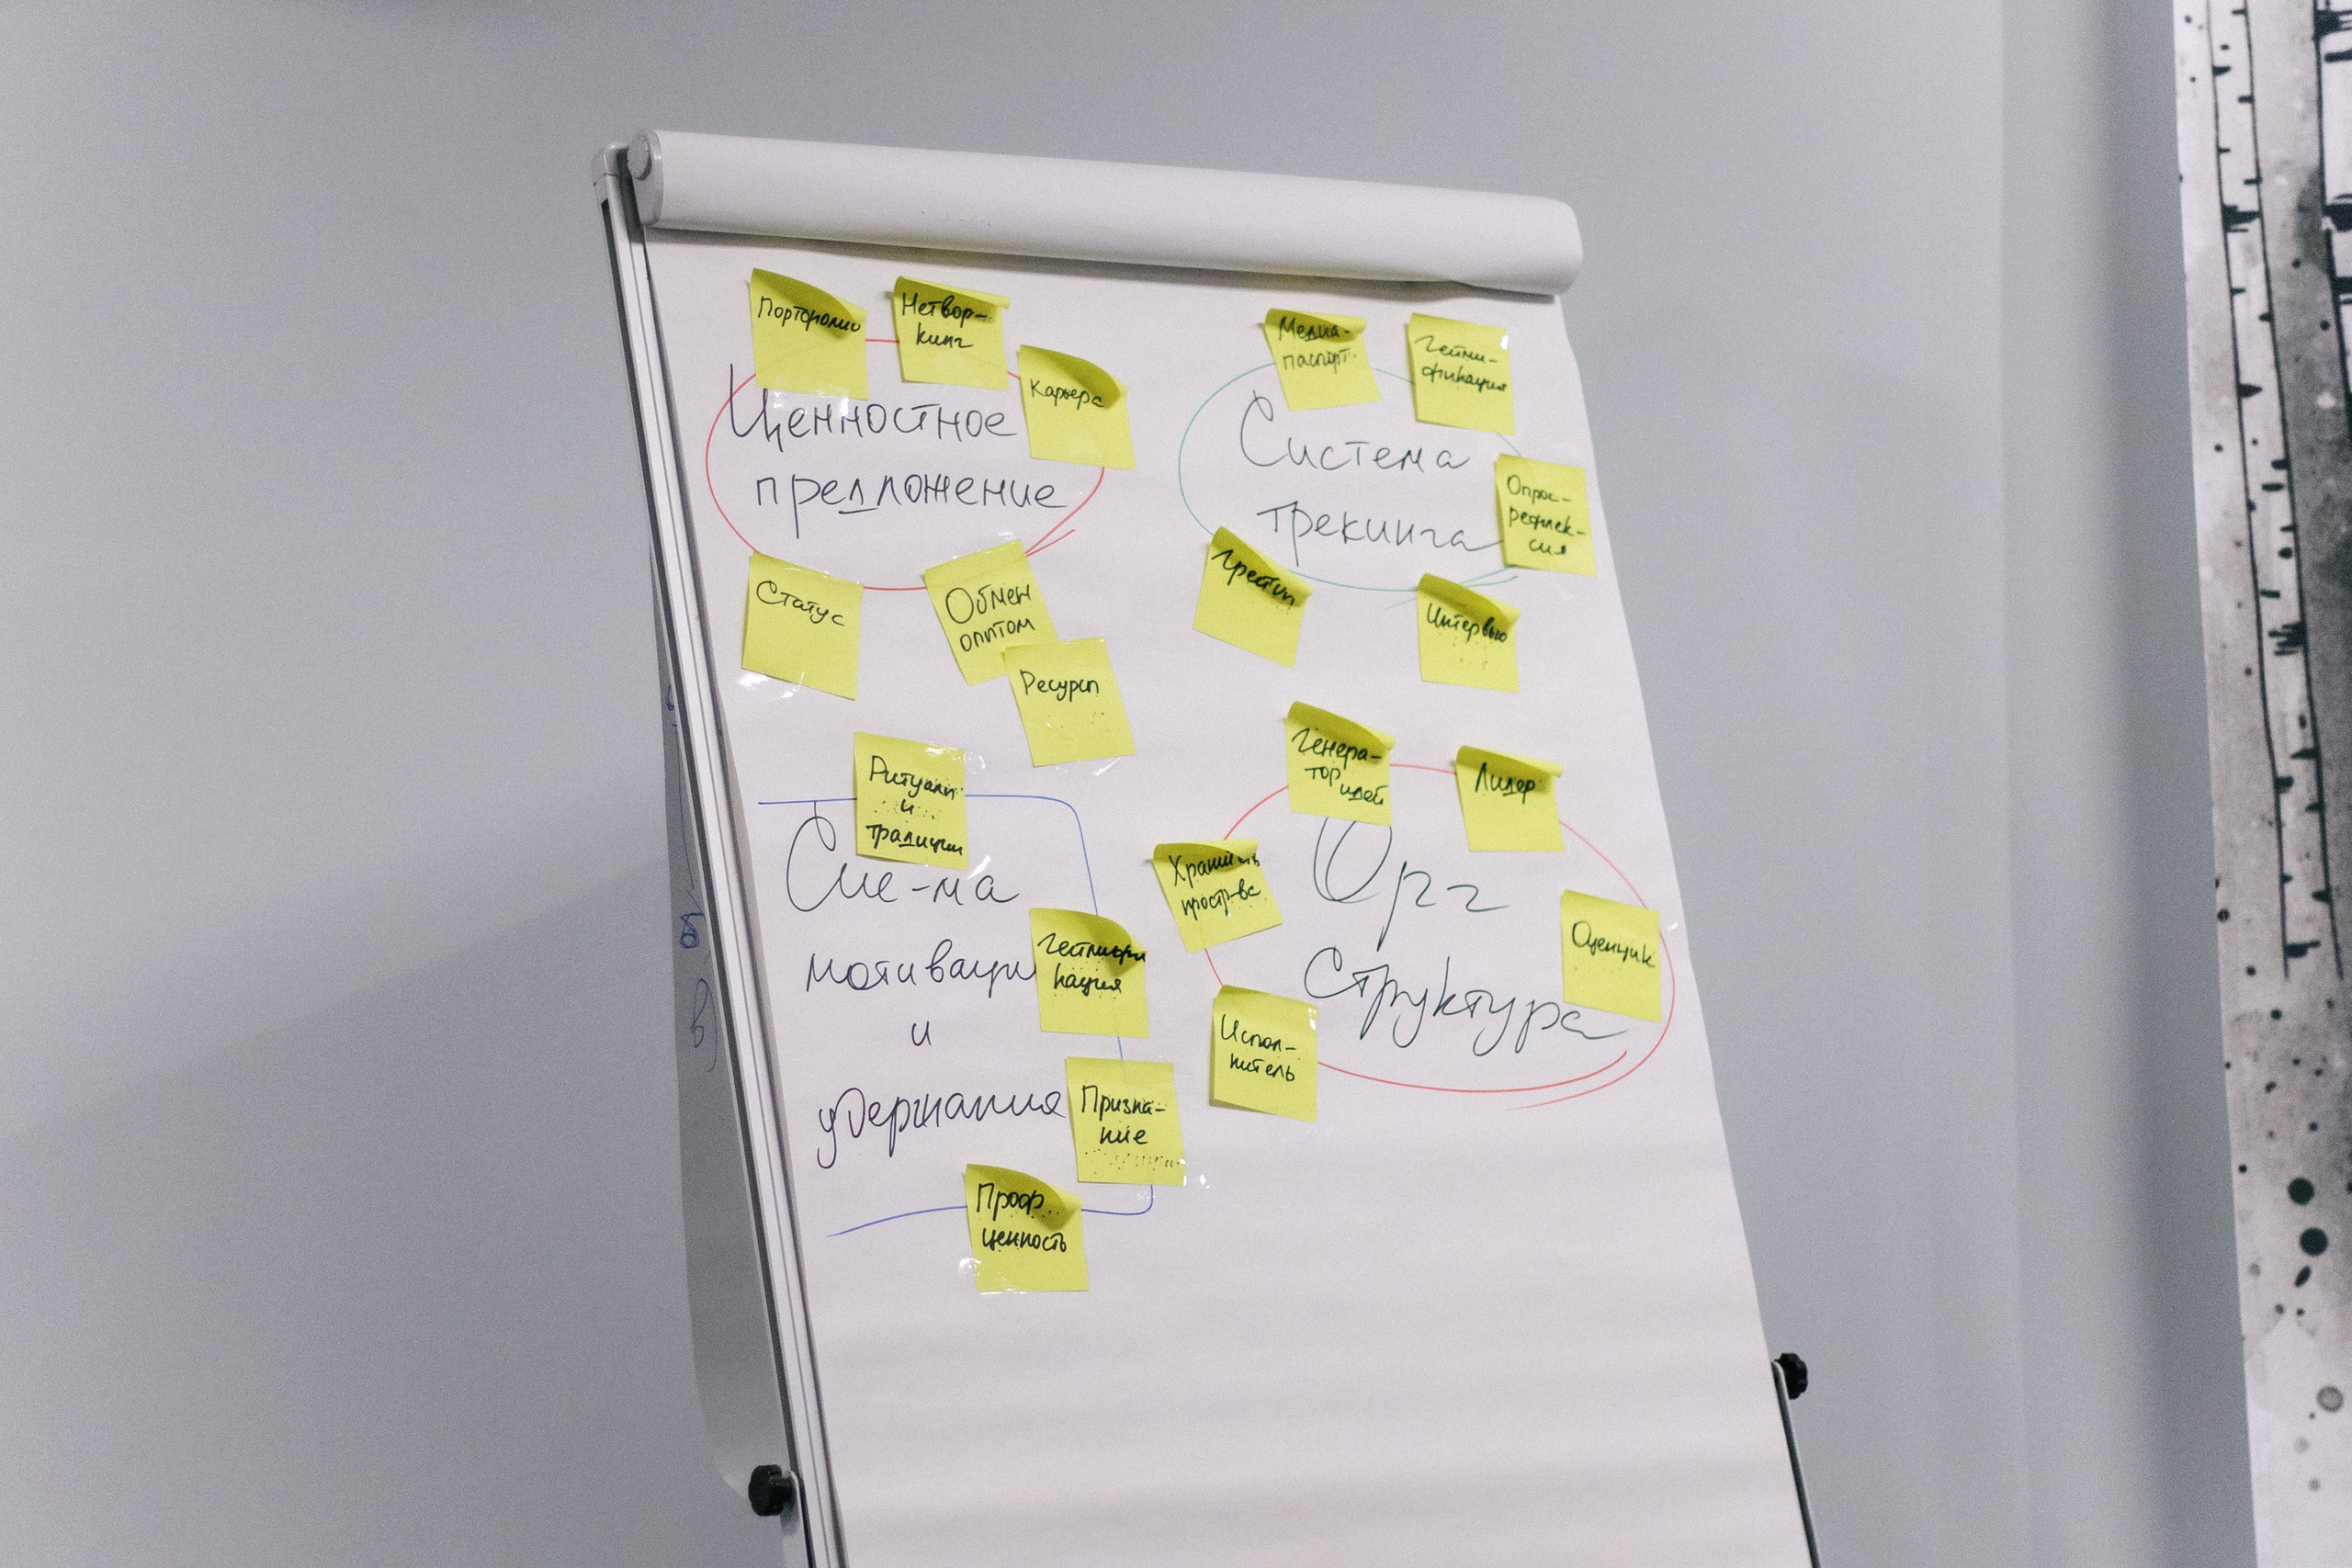 Портфолио
Нетвор-
кинг
Карьера
Ценностное
предложение
Статус
Обмен
опытом
Ресурсы
Медиа-
паспорт
Гейми-
фикация
Система
трекинга
Опрос-
рефлек-
сия
Интервью
Ритуалы
и
традиции
Сис-ма
мотивации
и
удержания
Геймифи
кация
Призна-
ние
Проф.
ценность
Генера-
тор идей
Лидер
Хранитель
простр-ва
Орг
Структура
Оценщик
Испол-
нитель